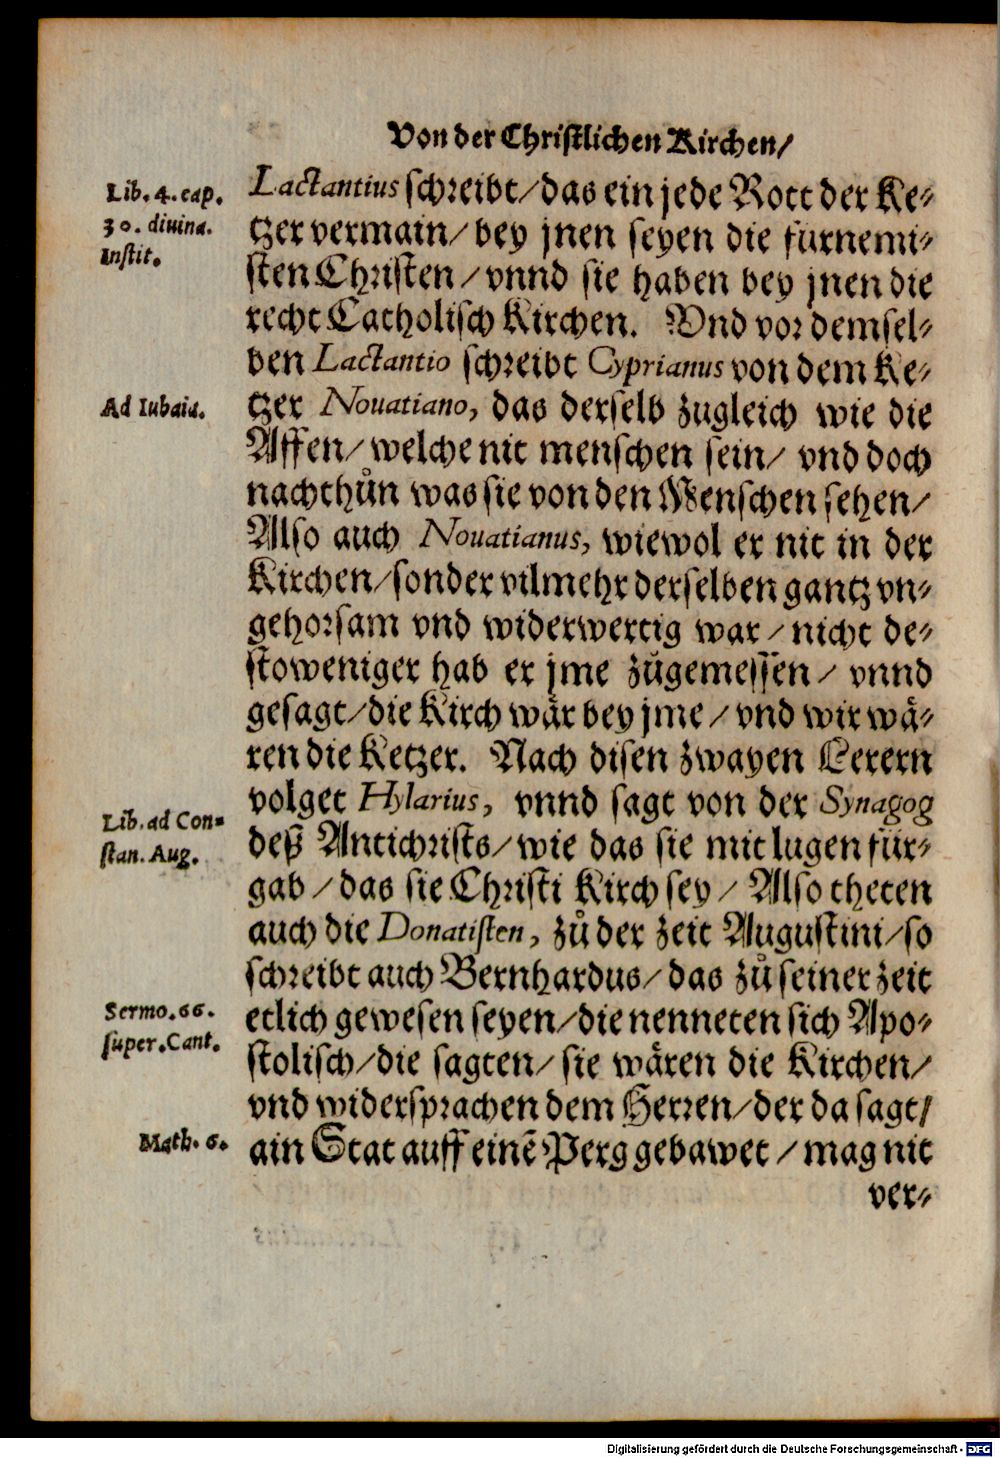 Von der Christlichen Kirchen/
Lib. 4. cap.
30. diuina.
Instit.
Lactantius schreibt/das ein jede Rott der Ke-
tzer vermain/ bey jnen seyen die fürnemi-
sten Christen/ vnnd sie haben bey jnen die
recht Catholisch Kirchen. Vnd vor demsel-
ben Lactantio schreibt Cyprianus von dem Ke-
Ad Iubaia.
tzer Nouatiano, das derselb zugleich wie die
Affen/ welche nit menschen sein/ vnd doch
nachthůn was sie von den Menschen sehen/
Also auch Nouatianus, wiewol er nit in der
Kirchen/sonder vilmehr derselben gantz vn-
gehorsam vnd widerwertig war/ nicht de-
stoweniger hab er jme zůgemessen/ vnnd
gesagt/die Kirch wär bey jme/ vnd wir wä-
ren die Ketzer. Nach disen zwayen Lerern
volget Hylarius, vnnd sagt von der Synagog
Lib. ad Con-
stan. Aug.
deß Antichrists/ wie das sie mit lugen für-
gab/ das sie Christi Kirch sey/ Also theten
auch die Donatisten, zů der zeit Augustini/so
schreibt auch Bernhardus/ das zů seiner zeit
Sermo. 66.
super. Cant.
etlich gewesen seyen/die nenneten sich Apo-
stolisch/die sagten/ sie wären die Kirchen/
vnd widersprachen dem Herren/der da sagt/
Math. 6.
ain Stat auff einē Perg gebawet/ mag nit
ver-
Digitalisierung gefördert durch die Deutsche Forschungsgemeinschaft - DFG